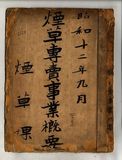 昭和十二年九月
煙草專賣事業概要
煙草課